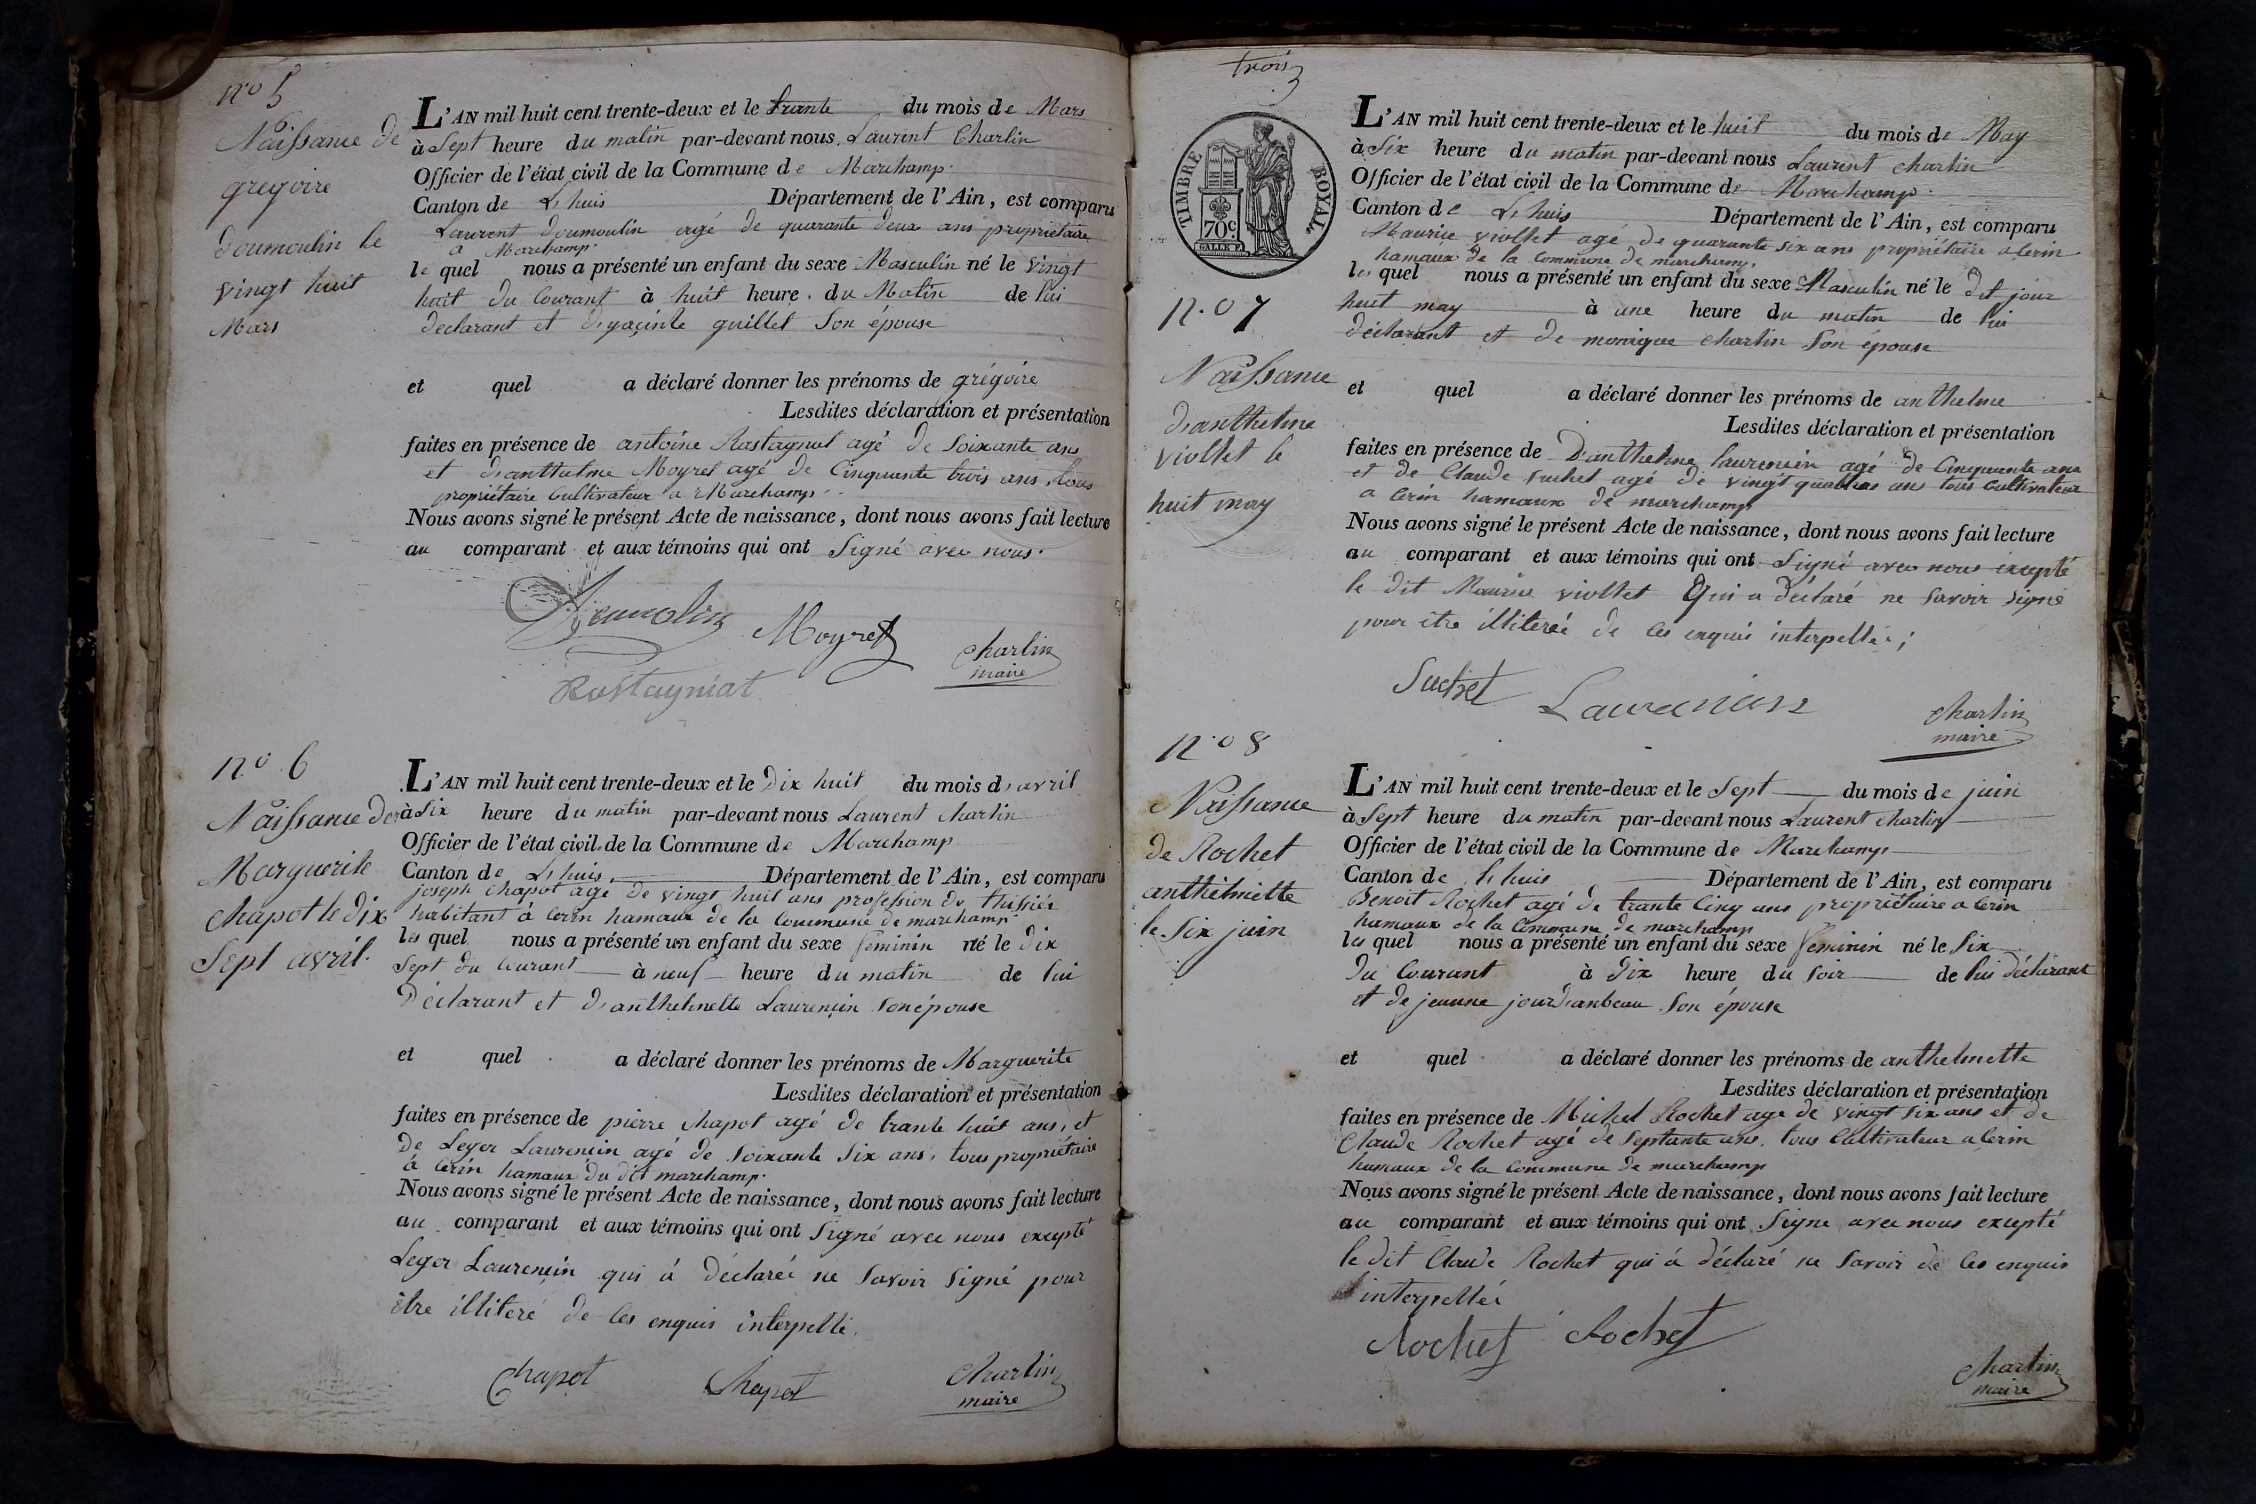 n.o 5
Naissance de
gregoire
doumoulin le
vingt huit
Mars
L'AN mil huit cent trente-deux et le trante du mois de Mars
à Sept heure du matin par-devant nous Laurent Charlin
Officier de l'état civil de la Commune de Marchamp.
Canton de L'huis Département de l'Ain, est comparu
Laurent doumoulin agé de quarante deux ans propriétaire
a Marchamp.
le quel nous a présenté un enfant du sexe Masculin né le vingt
huit du Courant à huit heure du Matin de lui
declarant et d'yaçinte guillet Son épouse
et quel a déclaré donner les prénoms de grégoire
Lesdites déclaration et présentation
faites en présence de antoine Rostagnat agé de Soixante ans
et d'anthelme Moyret agé de Cinquante trois ans, tous
propriétaire Cultivateur a Marchamp.
Nous avons signé le présent Acte de naissance, dont nous avons fait lecture
au comparant et aux témoins qui ont Signé avec nous.
Doumolin Moyret Charlin
maire
Rostagniat
n.o 6
Naissance de
Marguerite
Chapot le dix
Sept avril.
L'AN mil huit cent trente-deux et le Dix huit du mois d'avril
à Six heure du matin par-devant nous Laurent Charlin
Officier de l'état civil de la Commune de Marchamp
Canton de L'huis. Département de l'Ain, est comparu
joseph Chapot agé de vingt huit ans profession de tissier
habitant à Cerin hamaux de la Commune de marchamp.
le quel nous a présenté un enfant du sexe feminin né le dix
Sept du Courant à neuf heure du matin de lui
Déclarant et d'anthelmette Laurençin Son épouse
et quel a déclaré donner les prénoms de Marguerite
Lesdites déclaration et présentation
faites en présence de pierre Chapot agé de trante huit ans, et
de Leger Laurençin agé de Soixante Six ans, tous propriétaire
à Cerin hamaux du dit marchamp.
Nous avons signé le présent Acte de naissance, dont nous avons fait lecture
au comparant et aux témoins qui ont Signé avec nous excepté
Leger Laurençin qui á déclaréé ne Savoir Signé pour
être illiteré de Ces enquis interpellé.
Chapot Chapot Charlin
maire
trois
TIMBRE ROYAL
70c.
n.o 7
Naissance
d'anthelme
viollet le
huit may
L'AN mil huit cent trente-deux et le huit du mois de May
à Six heure du matin par-devant nous Laurent Charlin
Officier de l'état civil de la Commune de Marchamp.
Canton de L'huis Département de l'Ain, est comparu
Maurice viollet agé de quarante six ans propriétaire a Cerin
hamaux de la Commune de marchamp.
le quel nous a présenté un enfant du sexe Masculin né le dit jour
huit may à une heure du matin de lui
déclarant et de monique Charlin Son épouse
et quel a déclaré donner les prénoms de anthelme
Lesdites déclaration et présentation
faites en présence de D'anthelme Laurencin agé de Cinquante ans
et de Claude Suchet agé de vingt quatre ans tous Cultivateur
a Cerin hamaux de marchamp
Nous avons signé le présent Acte de naissance, dont nous avons fait lecture
au comparant et aux témoins qui ont Signé avec nous excepté
le dit Maurice viollet Qui a déclaré ne Savoir Signé
pour être illiteréé de Ces enquis interpellé;
Suchet Laurancin Charlin
maire
n.o 8
Naissance
de Rochet
anthelmette
le Six juin
L'AN mil huit cent trente-deux et le Sept du mois de juin
à Sept heure du matin par-devant nous Laurent Charlin
Officier de l'état civil de la Commune de Marchamp
Canton de L'huis Département de l'Ain, est comparu
Benoit Rochet agé de trante Cinq ans propriétaire a Cerin
hamaux de la Commune de marchamp
le quel nous a présenté un enfant du sexe feminin né le Six
du Courant à Dix heure du Soir de lui déclarant
et de jeanne jourd'anbeau Son épouse
et quel a déclaré donner les prénoms de anthelmette
Lesdites déclaration et présentation
faites en présence de Michel Rochet agé de vingt Six ans et de
Claude Rochet agé de Septante ans, tous Cultivateur a Cerin
hamaux de la Commune de marchamp
Nous avons signé le présent Acte de naissance, dont nous avons fait lecture
au comparant et aux témoins qui ont Signé avec nous excepté
le dit Claude Rochet qui á déclaré ne Savoir de Ces enquis
interpellé
Rochet Rochet Charlin
maire